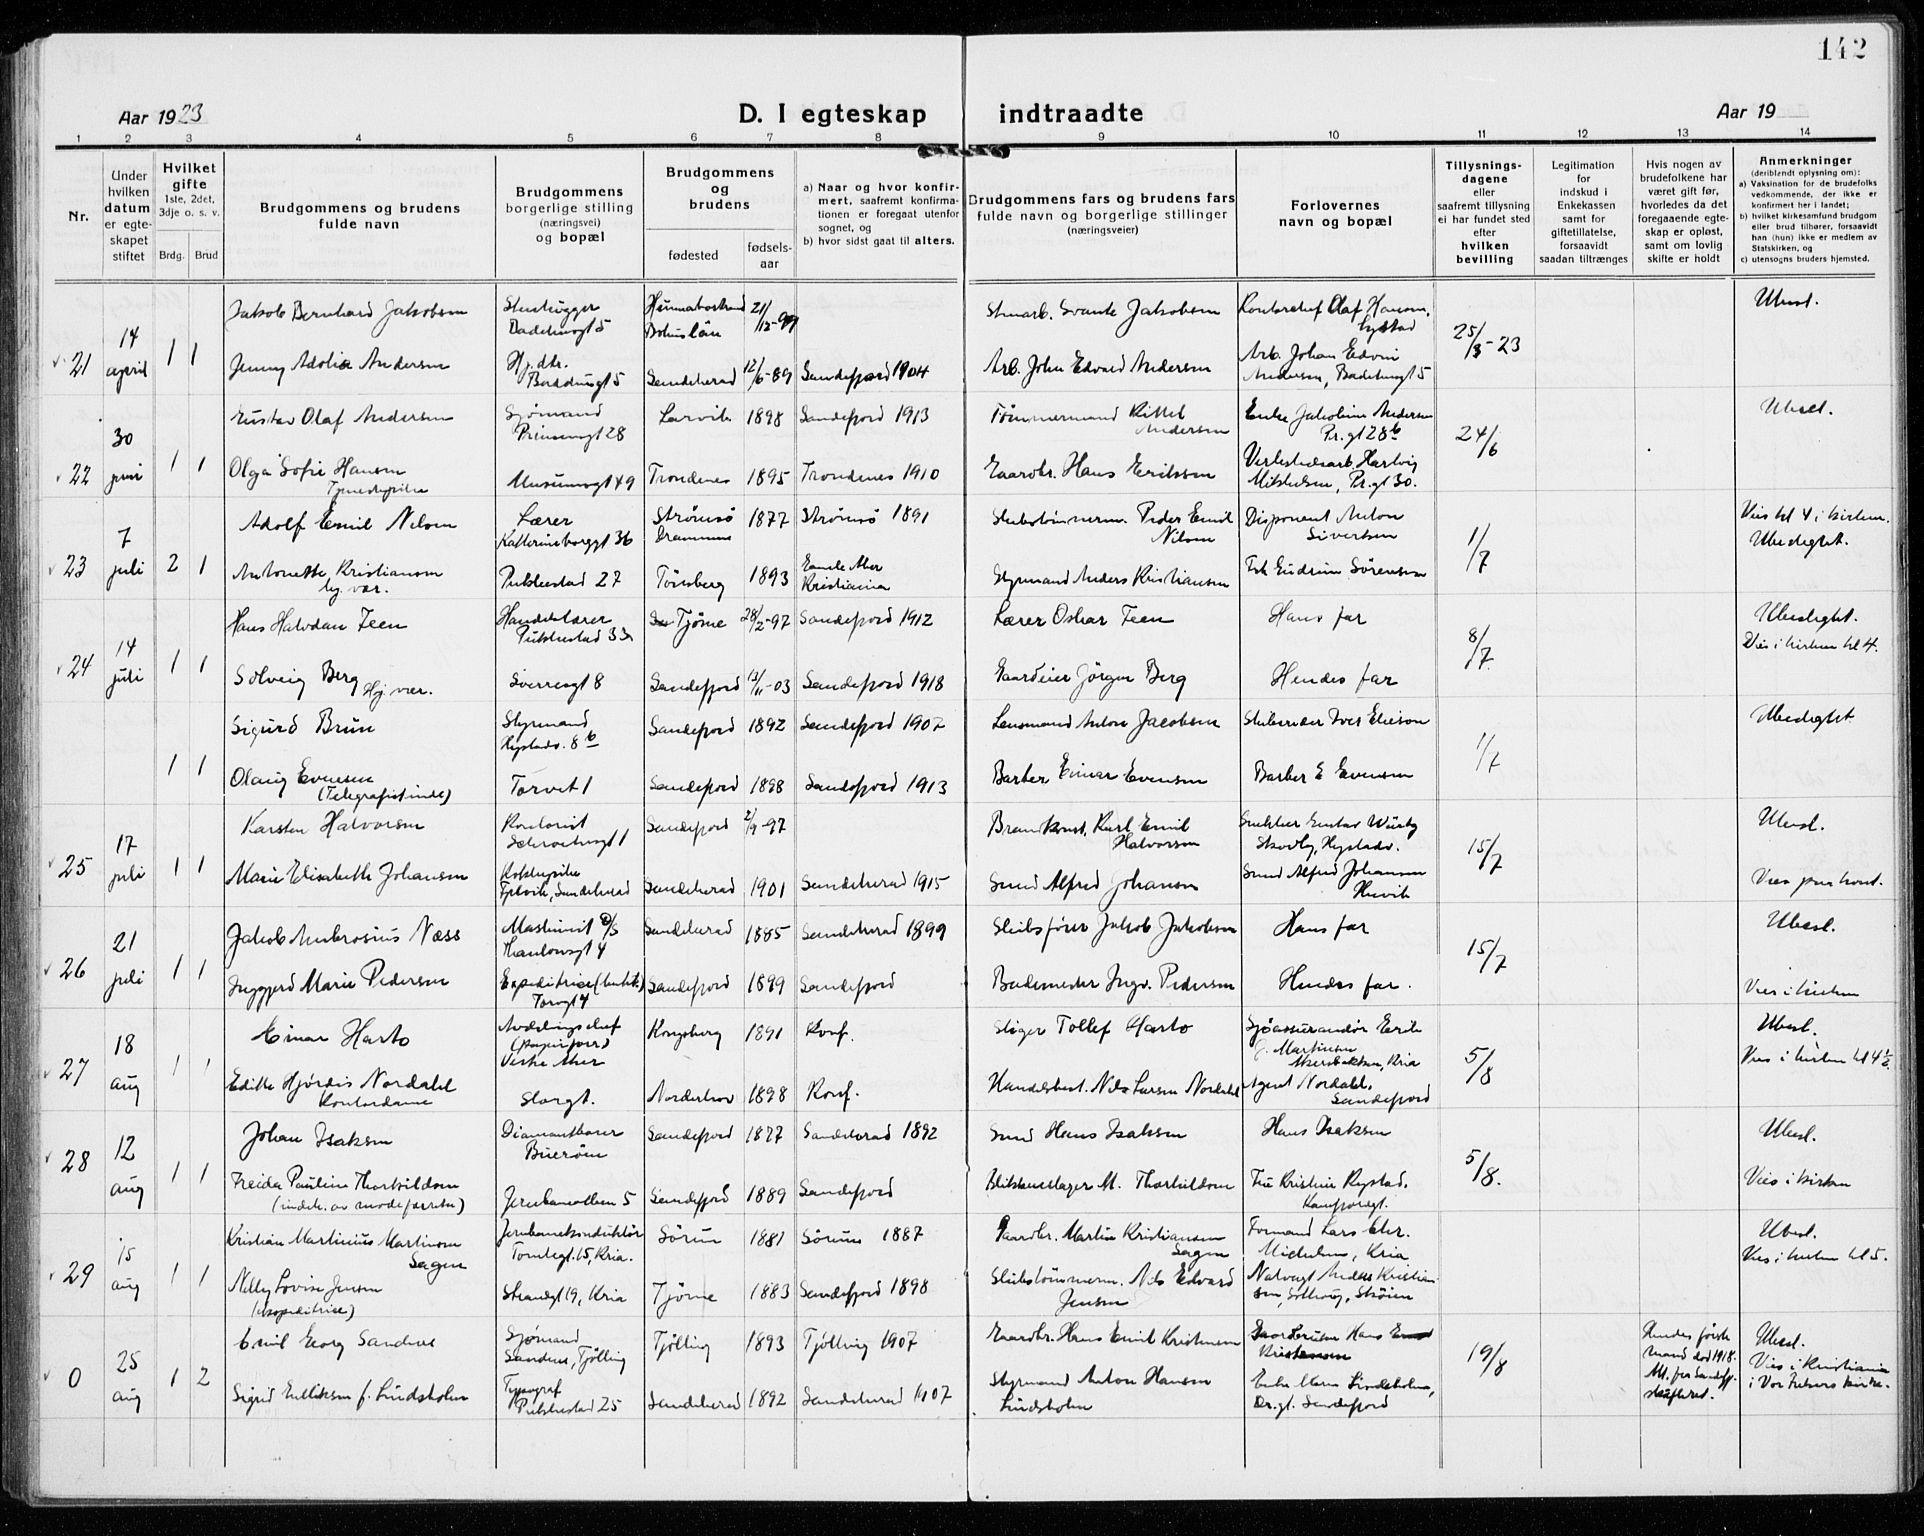 142
Aar 1923
D. I egteskap indtraadte
Aar 19
1 2 3 4 5 6 7 8 9 10 11 12 13 14
Nr.
Under
hvilken
datum
er egte-
skapet
stiftet
Hvilket
gifte
1ste, 2det,
3dje o. s. v.
Brdg. Brud
Brudgommens og brudens
fulde navn
Brudgommens
borgerlige stilling
(næringsvei)
og bopæl
Brudgommens
og
brudens
fødested
fødsels-
aar
a) Naar og hvor konfir-
mert, saafremt konfirma-
tionen er foregaat utenfor
sognet, og
b) hvor sidst gaat til alters.
Brudgommens fars og brudens fars
fulde navn og borgerlige stillinger
(næringsveier)
Forlovernes
navn og bopæl
Tillysnings-
dagene
eller
saafremt tillysning
ei har fundet sted
efter
hvilken
bevilling
Legitimation
for
indskud i
Enkekassen
samt for
giftetillatelse,
forsaavidt
saadan tiltrænges
Hvis nogen av
brudefolkene har
været gift før,
hvorledes da det
foregaaende egte-
skap er opløst,
samt om lovlig
skifte er holdt
Anmerkninger
(deriblandt oplysning om):
a) Vaksination for de brudefolks
vedkommende, der ikke er
konfirmert her i landet;
b) hvilket kirkesamfund brudgom
eller brud tilhører, forsaavidt
han (hun) ikke er medlem av
Statskirken, og
c) utensogns bruders hjemsted.
21
14
april
1 1
Jakob Bernhard Jakobsen
Stenhugger
21/12-99
Svante Jakobsen
Olaf Hansen,
25/3-23
Ubesl.
Jenny Adolia Andersen
12/6-89
Sandefjord 1904
Arb. John Edvard Andersen
Arb. Johan Edvin
Andersen, 5
22
30
juni
1 1
Gustav Olaf Andersen
Sjømand
Prinsensgt 28
Larvik
1898
Sandefjord 1913
Tømmermand Kittel
Andersen
Enke Jakobine Andersen
Pr.gt 28b
24/6
Ubesl.
Olga Sofie Hansen
Tjenestepike
Museumsgt 49
Trondenes
1895
Trondenes 1910
Gaardbr. Hans Eriksen
Hartvig
Mikkelsen, Pr.gt 30.
23
7
juli
2 1
Adolf Emil Nilsen
Lærer
Katterineborggt 36
Strømsø
Drammen
1877
Strømsø 1891
Skibstømmerm. Peder Emil
Nilsen
Disponent Anton
Sivertsen
1/7
Vies kl 4 i kirken.
Ubeslegtet.
Antonette Kristiansen
hj. vær.
Pukkestad 27
Tønsberg
1893
Gamle Aker
Kristiania
Styrmand Anders Kristiansen
Frk Gudrun Sørensen
24
14
juli
1 1
Hans Halvdan Teen
Handelslærer
Pukkestad 33
Tjøme
28/2-97
Sandefjord 1912
Lærer Oskar Teen
Hans far
8/7
Ubeslegtet.
Vies i kirken kl 4.
Solveig Berg
Hj. vær.
Sverresgt 8
Sandefjord
3/11-03
Sandefjord 1918
Gaardeier Jørgen Berg
Hendes far
1 1
Sigurd Brun
Styrmand
Hystadv. 8b
Sandefjord
1892
Sandefjord 1907
Lensmand Anton Jacobsen
Skibsreder Iver Eliesen
1/7
Ubeslegtet
Olaug Evensen
(Telegrafistinde)
Torvet 1
Sandefjord
1898
Sandefjord 1913
Barber Einar Evensen
Barber E Evensen
25
17
juli
1 1
Karsten Halvorsen
Kontorist
Sandefjord
2/9-97
Karl Emil
Halvorsen
Snekker Gustav
Skovly, Hystadv.
15/7
Ubesl.
Marie Elisabeth Johansen
Kokkepike
Sandeherad
1901
Sandeherad 1915
Smed Alfred Johansen
Smed Alfred Johansen
26
21
juli
1 1
Jakob Ambrosius Næss
Maskinist
Thaulowsgt 4
Sandeherad
1885
Sandeherad 1899
Skibsfører Jakob Jakobsen
Hans far
15/7
Ubesl.
Inggjerd Marie Pedersen
Expeditrice (butik)
Torvgt 4
Sandefjord
1899
Sandefjord
Bademester Ingv. Pedersen
Hendes far.
Vies i kirken
27
18
aug
1 1
Einar Harto
Avdelingschef
Vestre Aker
Kongsberg
1891
Konf.
Stiger Tollef Harto
Sjøassurandør Erik
J. Martinsen
Akersbakken, Kria
5/8
Ubesl.
Vies i kirken kl 4½
Edith Hjørdis Nordahl
Kontordame
Storgt.
Norderhov
1898
Konf.
Handelsbest. Nils Larsen Nordahl
Agent Nordahl,
Sandefjord
28
12
aug
1 1
Johan Isaksen
Diamantborer
Buerøen
Sandefjord
1877
Sandeherad 1892
Smed Hans Isaksen
Hans Isaksen
5/8.
Ubesl.
Freida Pauline Thorkildsen
(indeh. av modeforretn)
Jernbanealleen 5
Sandefjord
1889
Sandefjord
Blikkenslager M. Thorkildsen
Fru Kristine Rystad,
Kongsgt.
Vies i kirken
29
15
aug
1 1
Kristian Martinius Martinsen
Sagen
Jernbanekonduktør
Tomtegt. 15, Kria.
Sørum
1881
Sørum 1887
Gaardbr. Martin Kristiansen
Sagen
Formand Lars Chr.
Michelsen, Kria
Ubesl.
Vies i kirken kl 5.
Nelly Lovise Jensen
(expeditrice)
Strandgt 19, Kria
Tjøme
1883
Sandefjord 1898
Skibstømmerm. Nils Edvard
Jensen
Natvagt Anders Kristian-
sen, Solhaug, Skøien
0
25
aug
1 2
Emil Georg Sandnes
Sjømand
Sandnes, Tjølling
Tjølling
1893
Tjølling 1907
Gaardbr. Hans Emil Kristensen
Gaardbruker Hans Emil
Kristensen
19/8
Hendes første
mand død 1918.
Att. fra Sandefj.
skifteret.
Ubesl.
Vies i Kristiania
i Vor Frelsers kirke.
Sigrid Eulliksen f. Lindholm
Typograf
Pukkestad 25
Sandeherad
1892
Sandeherad 1907
Styrmand Anton Hansen
Lindholm
Enke Lindholm,
Dr.gt. Sandefjord